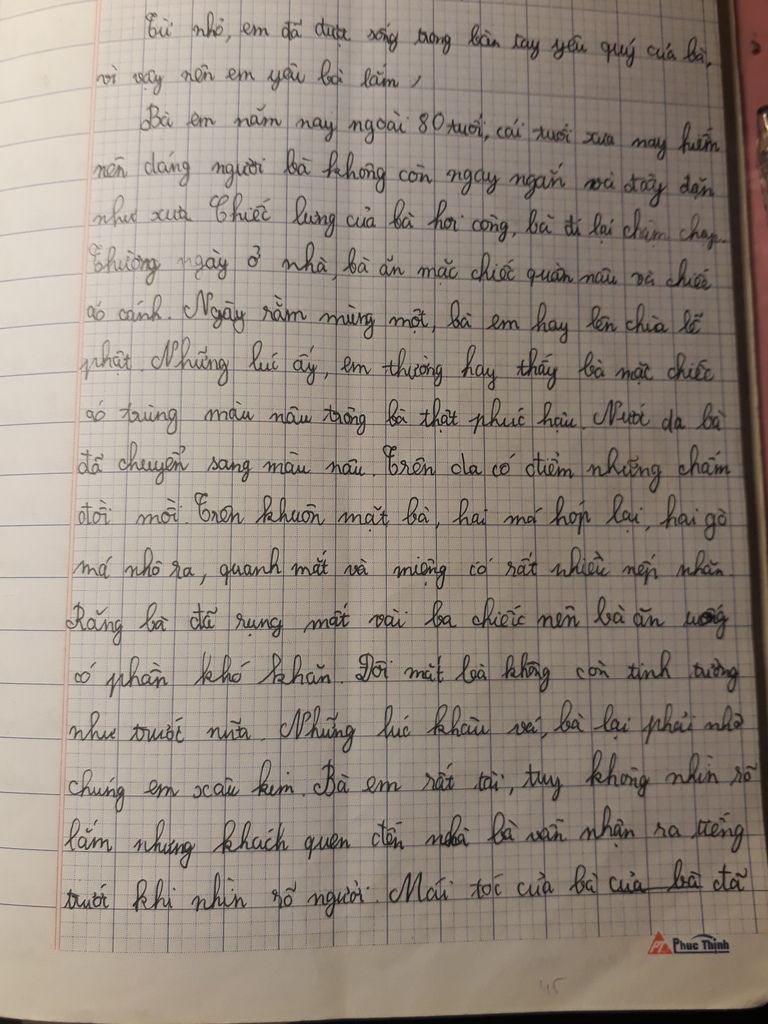 Từ nhỏ, em đã được sống trong bàn tay yêu quý của bà,
vì vậy nên em yêu bà lắm,
Bà em năm nay ngoài 80 tuổi, cái tuổi xưa nay hiếm
nên dáng người bà không còn ngay ngắn và đầy đặn
như xưa Chiếc lưng của bà hơi còng, bà đi lại chậm chạp.
Thường ngày ở nhà, bà ăn mặc chiếc quần nâu và chiếc
áo cánh. Ngày rằm mùng một, bà em hay lên chùa lễ
phật. Những lúc ấy, em thường hay thấy bà mặc chiếc
áo trùng màu nâu trông bà thật phúc hậu. Nước da bà
đã chuyển sang màu nâu. Trên da có điểm những chấm
đồi mồi. Trên khuôn mặt bà, hai má hóp lại, hai gò
má nhô ra, quanh mắt và miệng có rất nhiều nếp nhăn.
Răng bà đã rụng mất vài ba chiếc nên bà ăn uống
có phần khó khăn. Đôi mắt bà không còn tinh tường
như trước nữa. Những lúc khâu vá, bà lại phải nhờ
chúng em xâu kim. Bà em rất tài, tuy không nhìn rõ
lắm nhưng khách quen đến nhà bà vẫn nhận ra tiếng
trước khi nhìn rõ người. Mái tóc của bà của bà đã
PT Phuc Thinh
45